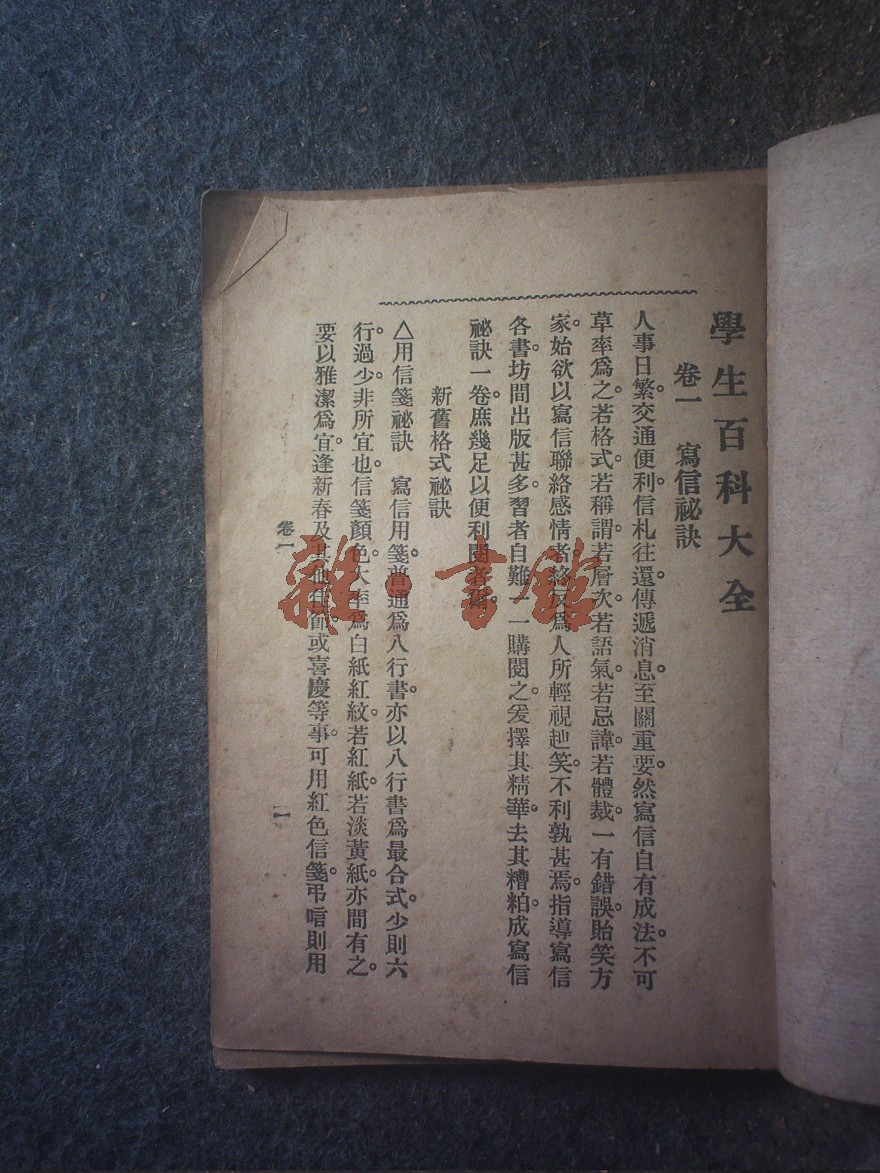 學生百科大全
卷一　寫信祕訣
人事日繁。交通便利。信札往還。傳遞消息。至關重要。然寫信自有成法。不可
草率爲之。若格式。若稱謂。若層次。若語氣。若忌諱。若體裁。一有錯誤。貽笑方
家。始欲以寫信聯絡感情者。終反爲人所輕視訕笑。不利孰甚焉。指導寫信
各書。坊間出版甚多。習者自難一一購閱之。爰擇其精華。去其糟粕。成寫信
祕訣一卷。庶幾足以便利閱者爾。
新舊格式祕訣
△用信箋祕訣　寫信用箋。普通爲八行書。亦以八行書爲最合式。少則六
行。過少非所宜也。信箋顏色。大率爲白紙紅紋。若紅紙。若淡黃紙。亦間有之。
要以雅潔爲宜。逢新春及其他佳節。或喜慶等事。可用紅色信箋。弔唁則用
卷一
一
雜·書館